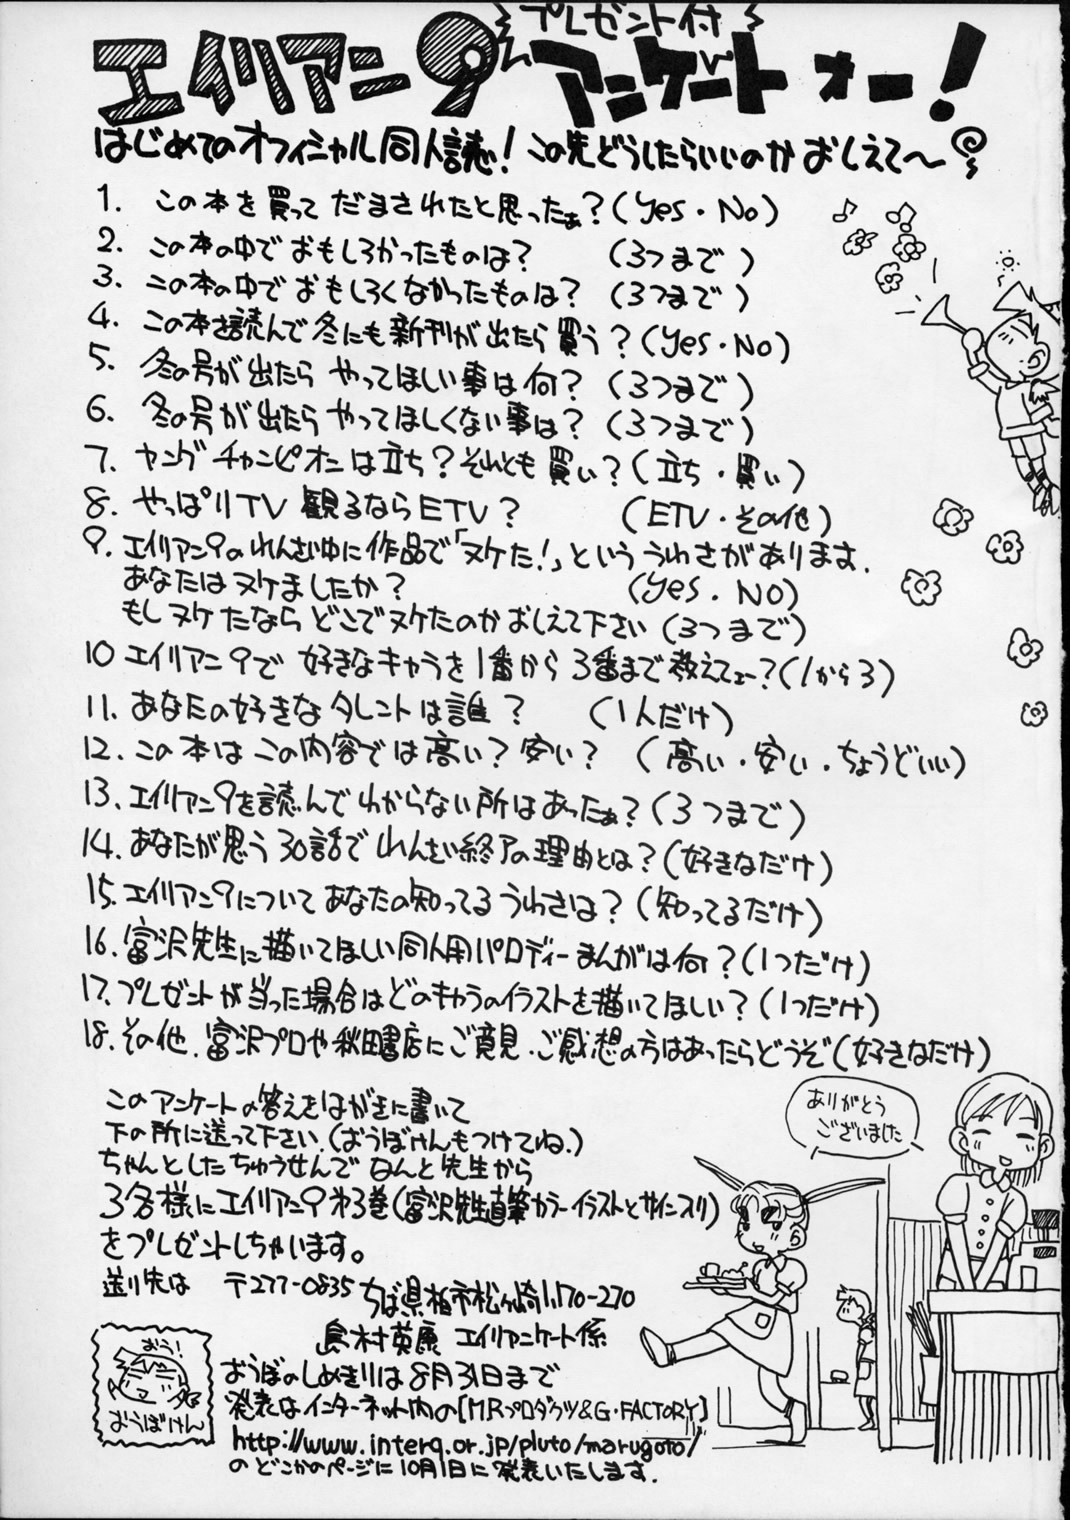 プレゼント付
エイリアン9 アンケートォー!
はじめてのオフィシャル同人誌! この先どうしたらいいのか おしえて〜
1. この本を買って だまされたと思ったぁ?(Yes・No)
2. この本の中で おもしろかったものは? (3つまで)
3. この本の中で おもしろくなかったものは? (3つまで)
4. この本を読んで冬にも新刊が出たら買う?(Yes・No)
5. 冬の号が出たら やってほしい事は何? (3つまで)
6. 冬の号が出たら やってほしくない事は? (3つまで)
7. ヤングチャンピオンは立ち?それとも買い?(立ち・買い)
8. やっぱりTV 観るならETV? (ETV・その他)
9. エイリアン9のれんさい中に作品で「ヌケた!」という うわさがあります.
あなたはヌケましたか? (Yes・NO)
もしヌケたなら どこでヌケたのか おしえて下さい (3つまで)
10 エイリアン9で 好きなキャラを1番から3番まで教えてェー?(1から3)
11. あなたの好きなタレントは誰? (1人だけ)
12. この本は この内容では高い?安い? (高い・安い・ちょうどいい)
13. エイリアン9を読んで わからない所はあったぁ?(3つまで)
14. あなたが思う30話で れんさい終了の理由とは?(好きなだけ)
15. エイリアン9について あなたの知ってるうわさは? (知ってるだけ)
16. 富沢先生に描いてほしい同人用パロディーまんがは何?(1つだけ)
17. プレゼントが当った場合はどのキャラのイラストを描いてほしい?(1つだけ)
18. その他、富沢プロや秋田書店にご意見・ご感想の方はあったらどうぞ(好きなだけ)
このアンケートの答えをはがきに書いて
下の所に送って下さい.(おうぼけんもつけてね.)
ちゃんとしたちゅうせんで なんと先生から
3名様にエイリアン9 第3巻(富沢先生直筆カラーイラストとサイン入り)
をプレゼントしちゃいます。
送り先は 〒277-0835 ちば県柏市松ヶ崎1170-270
島村英康 エイリアンケート係
おうぼのしめきりは8月31日まで
発表はインターネット内の[MRプロダクツ&G・FACTORY]
http://www.interq.or.jp/pluto/marugoto/
の どこかのページに10月1日に発表いたします.
おう!
おうぼけん
ありがとう
ございました